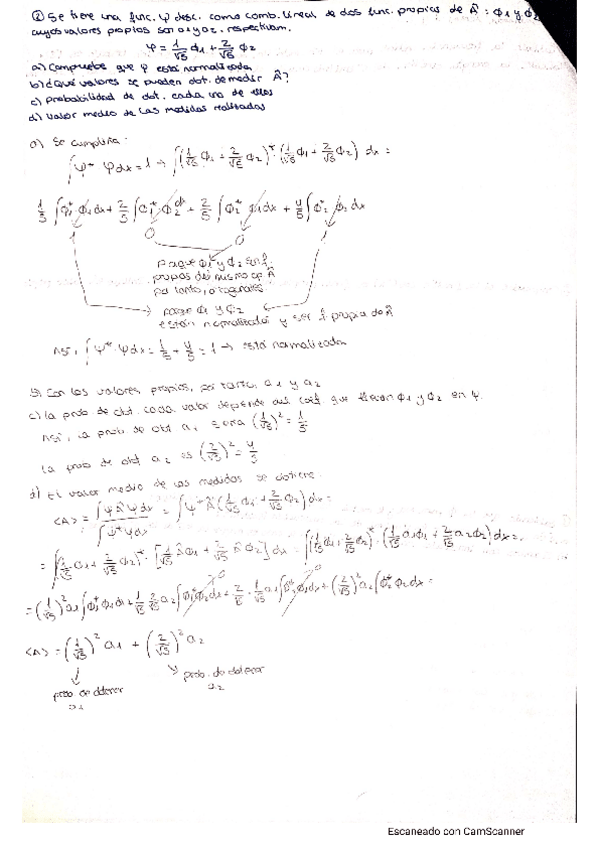 ② Se tiene una func. φ desc. como comb. lineal de dos func. propias de Â: ϕ1 y ϕ2
cuyos valores propios son a1 y a2, respectivam.
φ = 1/√5 ϕ1 + 2/√5 ϕ2
a) Compruebe que φ está normalizada
b) ¿Qué valores se pueden obt. de medir Â?
c) probabilidad de obt. cada uno de ellos
d) valor medio de las medidas realizadas
a) Se cumpliría:
∫ψ* ψdx = 1 → ∫(1/√5 ϕ1 + 2/√5 ϕ2)* · (1/√5 ϕ1 + 2/√5 ϕ2) dx =
1/5 ∫ϕ1* ϕ1 dx + 2/5 ∫ϕ1* ϕ2 dx + 2/5 ∫ϕ2* ϕ1 dx + 4/5 ∫ϕ2* ϕ2 dx
1 0 0 1
porque ϕ1 y ϕ2 son f.
propias del mismo op. Â
por tanto, ortogonales
porque ϕ1 y ϕ2
están normalizadas y ser f. propia de Â
Así, ∫ψ* ψdx = 1/5 + 4/5 = 1 → está normalizada
b) Son los valores propios, por tanto, a1 y a2
c) la prob. de obt. cada valor depende del coef. que llevan ϕ1 y ϕ2 en φ.
Así, la prob. de obt. a1 será (1/√5)² = 1/5
La prob de obt a2 es (2/√5)² = 4/5
d) El valor medio de las medidas se obtiene:
<A> = ∫ψ Â ψdx / ∫ψ* ψdx = ∫ψ* Â (1/√5 ϕ1 + 2/√5 ϕ2) dx =
= ∫(1/√5 ϕ1 + 2/√5 ϕ2)* · [1/√5 Âϕ1 + 2/√5 Âϕ2] dx = ∫(1/√5 ϕ1 + 2/√5 ϕ2)* · (1/√5 a1ϕ1 + 2/√5 a2ϕ2) dx =
= (1/√5)² a1 ∫ϕ1* ϕ1 dx + 1/√5 2/√5 a2 ∫ϕ1* ϕ2 dx + 2/√5 · 1/√5 a1 ∫ϕ2* ϕ1 dx + (2/√5)² a2 ∫ϕ2* ϕ2 dx =
0 0
<A> = (1/√5)² a1 + (2/√5)² a2
prob. de obtener
a1
prob. de obtener
a2
Escaneado con CamScanner